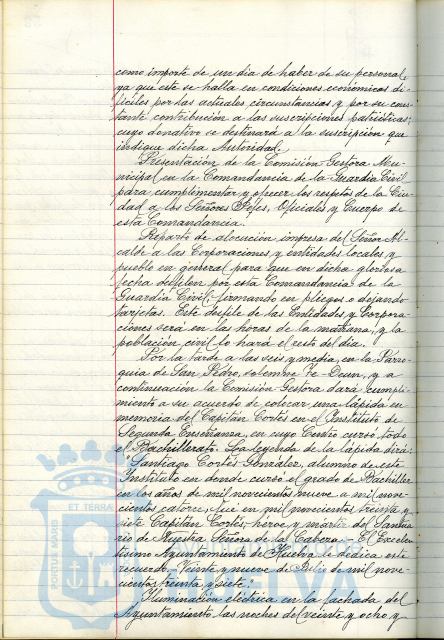 como importe de un día de haber de su personal,
ya que este se halla en condiciones económicas di-
fíciles por las actuales circunstancias y por su cons-
tante contribución a las suscripciones patrióticas;
cuyo donativo se destinará a la suscripción que
indique dicha Autoridad.
Presentación de la Comisión Gestora Mu-
nicipal en la Comandancia de la Guardia Civil
para cumplimentar y ofrecer los respetos de la Ciu-
dad a los Señores Jefes, Oficiales y Cuerpo de
esta Comandancia.
Reparto de alocución impresa del Señor Al-
calde a las Corporaciones y entidades locales y
pueblo en general para que en dicha gloriosa
fecha desfilen por esta Comandancia de la
Guardia Civil, firmando en pliegos o dejando
tarjetas. Este desfile de las Entidades y Corpora-
ciones será en las horas de la mañana, y la
población civil lo hará el resto del día.
Por la tarde a las seis y media, en la Parro-
quia de San Pedro, solemne Te-Deum, y a
continuación la Comisión Gestora dará cumpli-
miento a su acuerdo de colocar una lápida en
memoria del Capitán Cortés en el Instituto de
Segunda Enseñanza, en cuyo Centro cursó todo
el Bachillerato. La leyenda de la lápida dirá:
Santiago Cortés González, alumno de este
Instituto en donde cursó el grado de Bachiller
en los años de mil novecientos nueve a mil nove-
cientos catorce, fue en mil novecientos treinta y
siete Capitán Cortés, héroe y mártir del Santua
rio de Nuestra Señora de la Cabeza.- El Excelen-
tísimo Ayuntamiento de Huelva le dedica este
recuerdo.- Veinte y nueve de Julio de mil nove-
cientos treinta y siete.
Iluminación eléctrica en la fachada del
Ayuntamiento las noches del veinte y ocho y
PORTUS MARIS
ET TERRAE